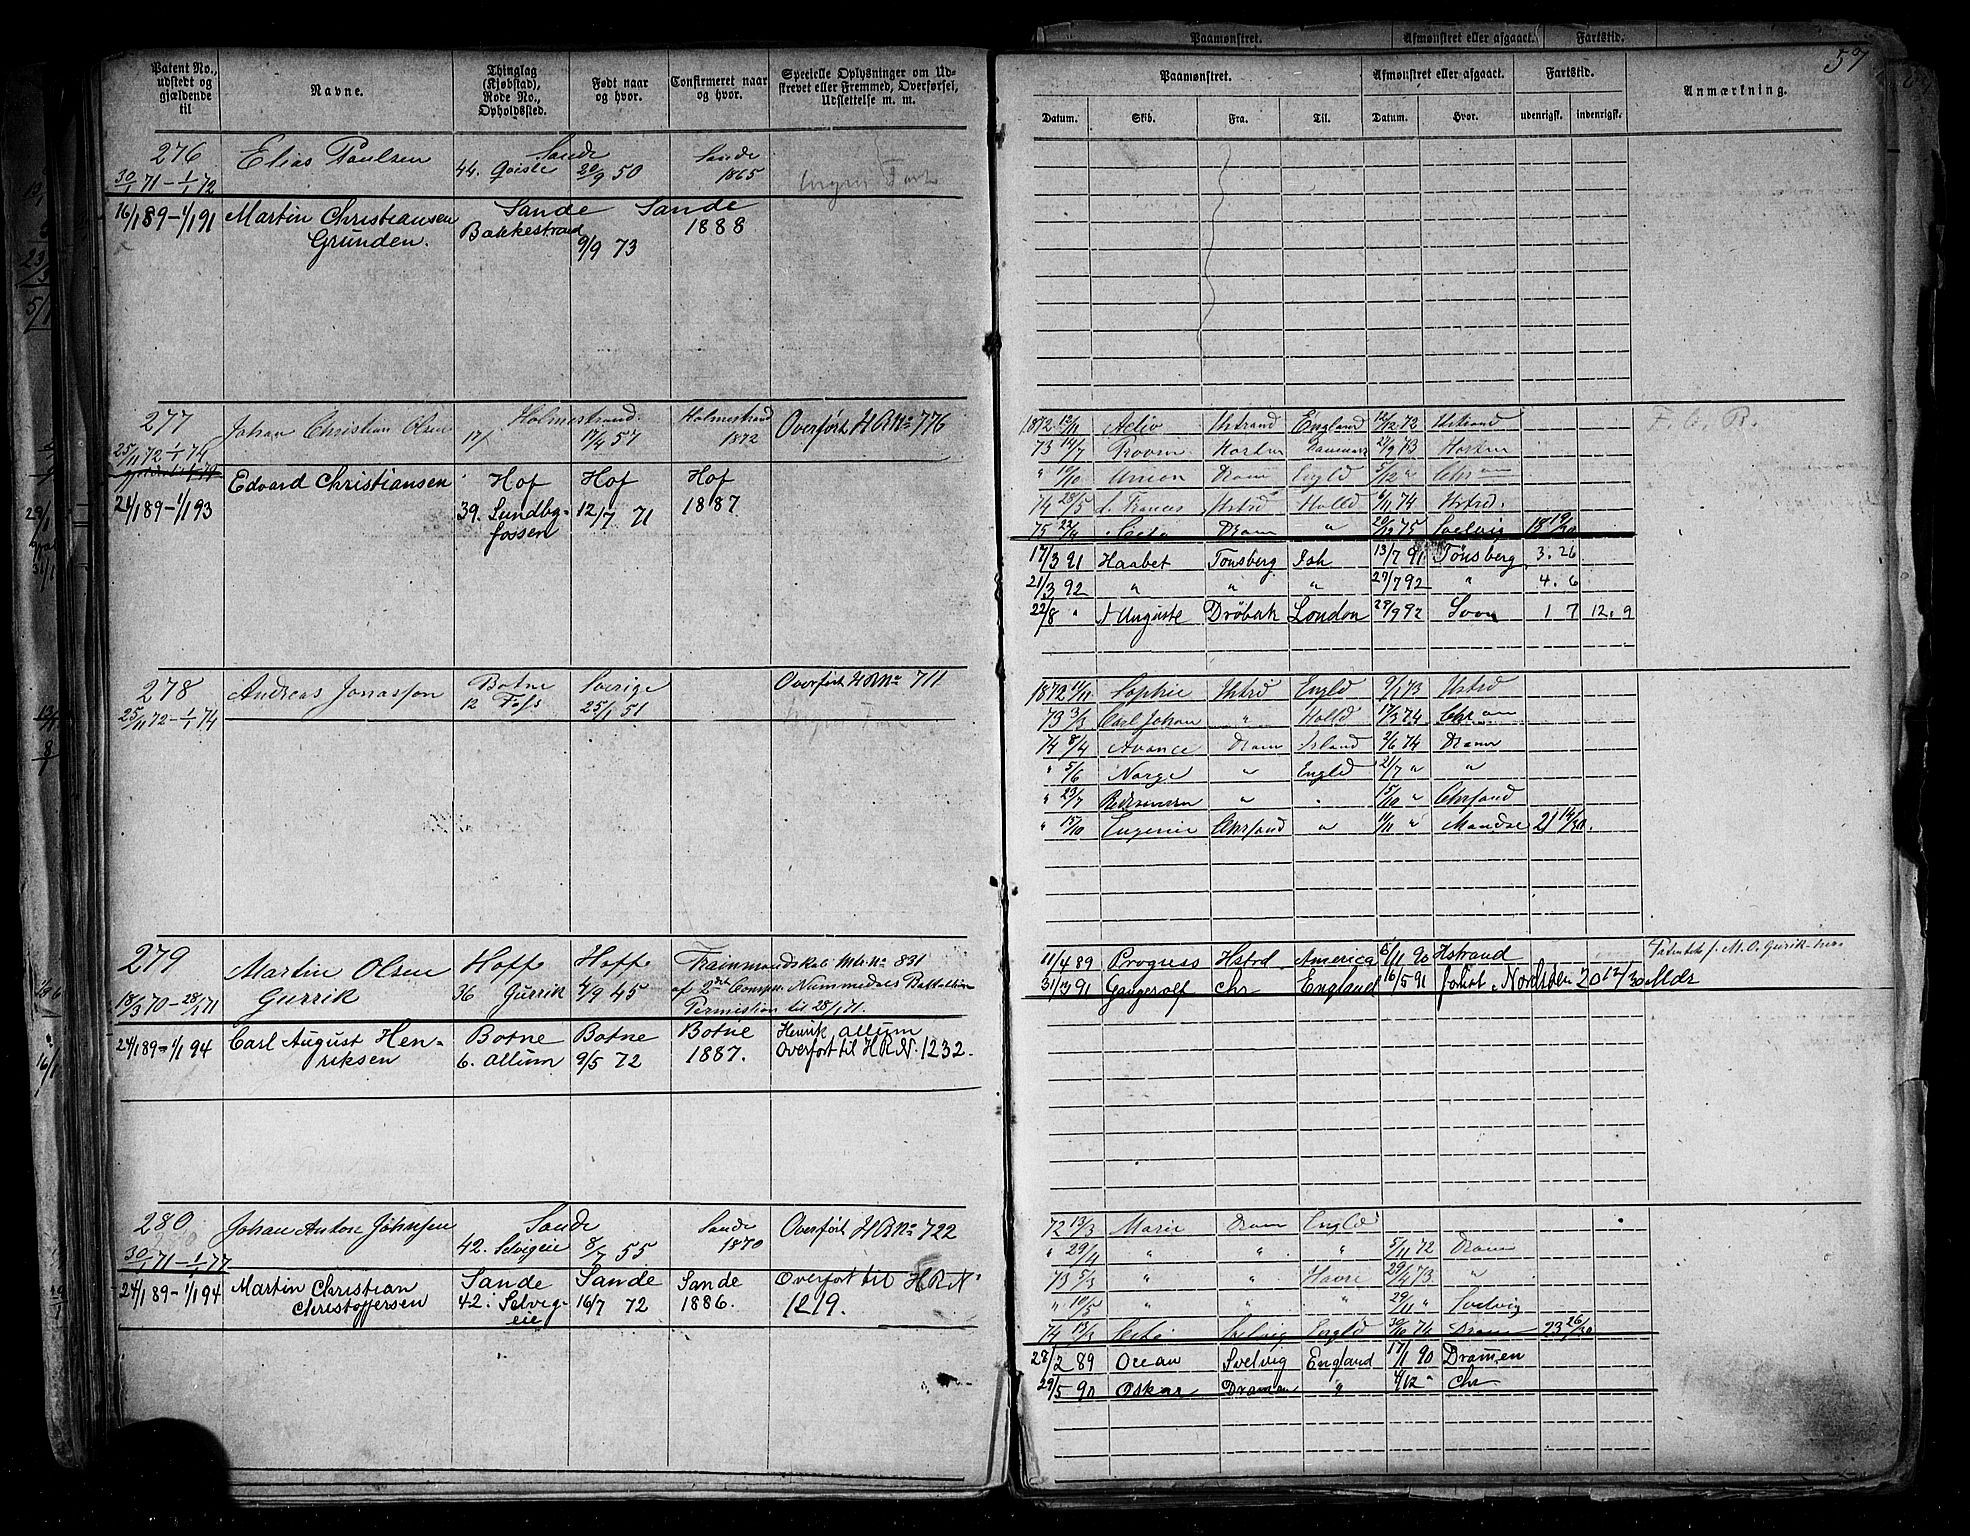 Patent No., udstedt og gjældende til
Navne.
Thinglag (Kjøbstad), Rode No., Opholdssted.
Født naar og hvor.
Confirmeret naar og hvor.
Specielle Oplysninger om Udskrevet eller Fremmed, Overførsel, Udslettelse m. m.
276 Elias Paulsen Sande Sande
30/1 71 – 1/1 72 44. 20/9 50 1865 Ingen Fart
16/1 89 – 1/1 91 Martin Christiansen Sande Sande
Grunden. Bakkestrand 9/9 73 1888
277 Johan Christian Olsen Holmestrand Holmestrand Overført H R No 776
25/11 72 – 1/1 74 17/4 57 1872
Edvard Christiansen Hof Hof Hof
21/1 89 – 1/1 93 39. Sundbyfossen 12/7 71 1887
278 Andreas Jonasson Botne Sverige Overført H R No 711
25/11 72 – 1/1 74 12 Foss 25/1 51
279 Martin Olsen Hoffe Hoffe Trainmandskab No 831
18/3 70 – 28/1 71 Gurrik 36 Gurrik 4/9 45 af 2det Comp. Nummedals Battallion
Permission til 28/1 71.
24/1 89 – 1/1 94 Carl August Henriksen Botne Botne Botne Henrik Allum
6. Allum 9/5 72 1887. Overført til H R N. 1232.
280 Johan Anton Johnsen Sande Sande Overført H R No 722
30/1 71 – 1/1 77 42. Selvigeie 8/7 55 1870
24/1 89 – 1/1 94 Martin Christian Sande Sande Sande Overført til H R N.
Christoffersen 42. Selvigeie 16/7 72 1886. 1219.
Paamønstret. Afmønstret eller afgaaet. Fartstid.
57
Paamønstret. Afmønstret eller afgaaet. Fartstid. Anmærkning.
Datum. Skib. Fra. Til. Datum. Hvor. udenrigsk. indenrigsk.
1872 12/11 Activ Hstrand England 12/12 72 Hstrand F. O. R.
73 14/7 Horten 21/9 73 Horten
" 10/10 Union Dram Engld 5/12 " Chrania
74 28/5 Frances Hstrd Holld 6/11 74 Hstrd.
75 22/4 Dram " 20/12 75 Svelvig 18 19/30
17/3 91 Haabet Tønsberg Ish 13/7 91 Tønsberg 3. 26
21/3 92 " " " 27/7 92 " 4. 6
22/8 " Auguste Drøbak London 29/9 92 1 7 12. 9
1872 11/11 Sophie Hstrd Engld 9/1 73 Hstrd
73 3/3 Carl Johan " Holld 17/3 74 Chrania
74 8/4 Avance Dram Island 2/6 74 Dram
" 5/6 Norge " Engld 21/7 " "
" 23/7 " " 15/10 " Chrsand
" 15/10 Eugenie Chrsand " 11/11 " Mandal 21 14/30.
11/4 89 Progress Hstrd America 6/11 90 Hstrand
31/3 91 Gangerolf Chr England 16/5 91 Nordsøen 20 12/30 Mdr
72 13/3 Marie Dram Engld
" 29/4 " " " 5/11 72 Dram
73 5/3 " " Havre 29/4 73 "
" 10/5 " " " 29/11 " Svelvig
74 13/3 Svelvig Engld 30/10 74 Dram 23 26/30
28/2 89 Ocean Svelvig England 17/1 90 Drammen
29/5 90 Oskar Drammen " 4/12 " Chr